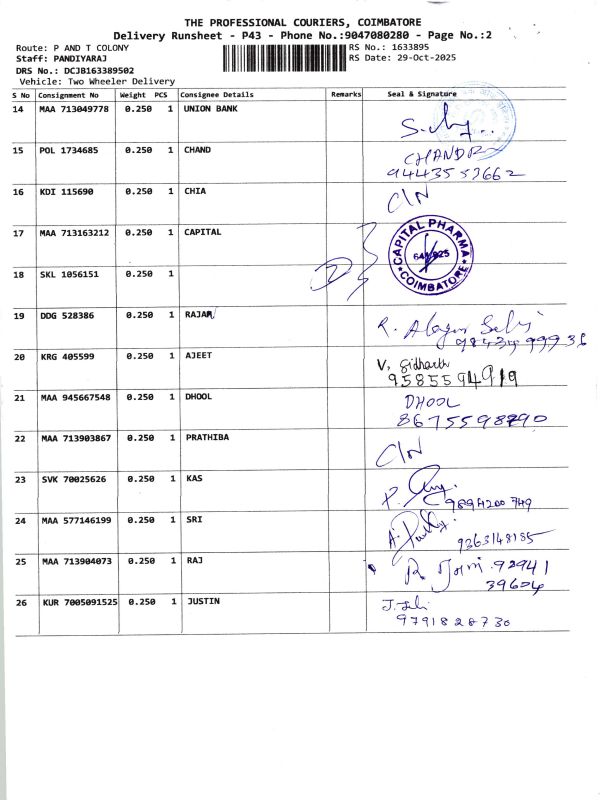 THE PROFESSIONAL COURIERS, COIMBATORE
Delivery Runsheet - P43 - Phone No.:9047080280 - Page No.:2
Route: P AND T COLONY RS No.: 1633895
Staff: PANDIYARAJ RS Date: 29-Oct-2025
DRS No.: DCJB163389502
Vehicle: Two Wheeler Delivery
S No Consignment No Weight PCS Consignee Details Remarks Seal & Signature
14 MAA 713049778 0.250 1 UNION BANK
15 POL 1734685 0.250 1 CHAND CHANDRA
9443553662
16 KDI 115690 0.250 1 CHIA C/N
17 MAA 713163212 0.250 1 CAPITAL CAPITAL PHARMA
641 025
COIMBATORE
18 SKL 1056151 0.250 1
19 DDG 528386 0.250 1 RAJAR R.
20 KRG 405599 0.250 1 AJEET V. Sidharth
9585594919
21 MAA 945667548 0.250 1 DHOOL DHOOL
22 MAA 713903867 0.250 1 PRATHIBA C/N
23 SVK 70025626 0.250 1 KAS P.
9894200749
24 MAA 577146199 0.250 1 SRI A.
9363148185
25 MAA 713904073 0.250 1 RAJ R 92941
39604
26 KUR 7005091525 0.250 1 JUSTIN J.
9791828730